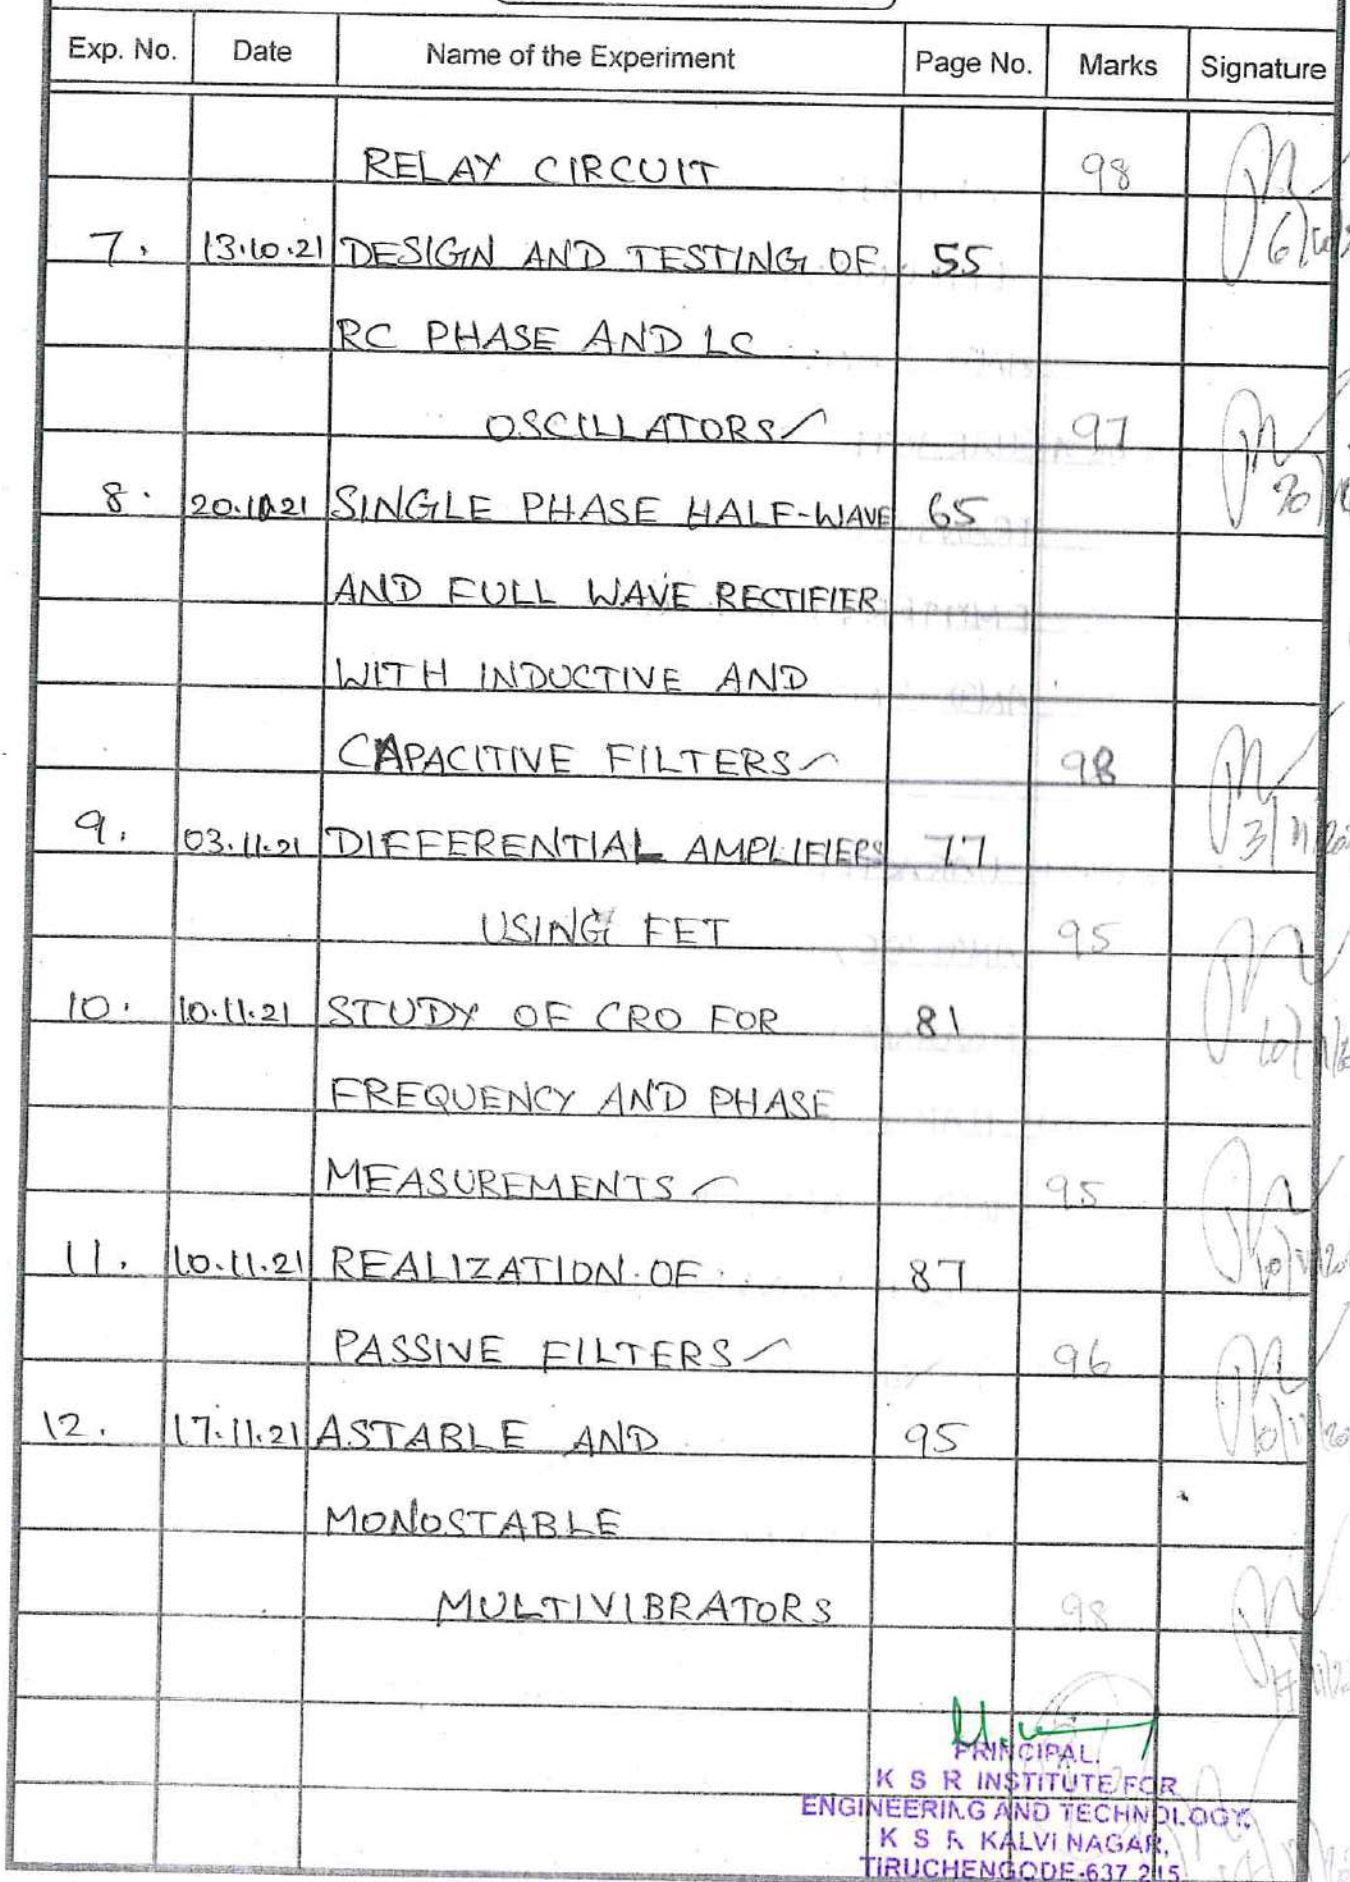 Exp. No. Date Name of the Experiment Page No. Marks Signature
RELAY CIRCUIT 98
7. 13.10.21 DESIGN AND TESTING OF 55
RC PHASE AND LC
OSCILLATORS 97
8. 20.10.21 SINGLE PHASE HALF-WAVE 65
AND FULL WAVE RECTIFIER
WITH INDUCTIVE AND
CAPACITIVE FILTERS 98
9. 03.11.21 DIFFERENTIAL AMPLIFIERS 77
USING FET 95
10. 10.11.21 STUDY OF CRO FOR 81
FREQUENCY AND PHASE
MEASUREMENTS 95
11. 10.11.21 REALIZATION OF 87
PASSIVE FILTERS 96
12. 17.11.21 ASTABLE AND 95
MONOSTABLE
MULTIVIBRATORS 98
PRINCIPAL,
K S R INSTITUTE FOR
ENGINEERING AND TECHNOLOGY,
K S R KALVI NAGAR,
TIRUCHENGODE-637 215